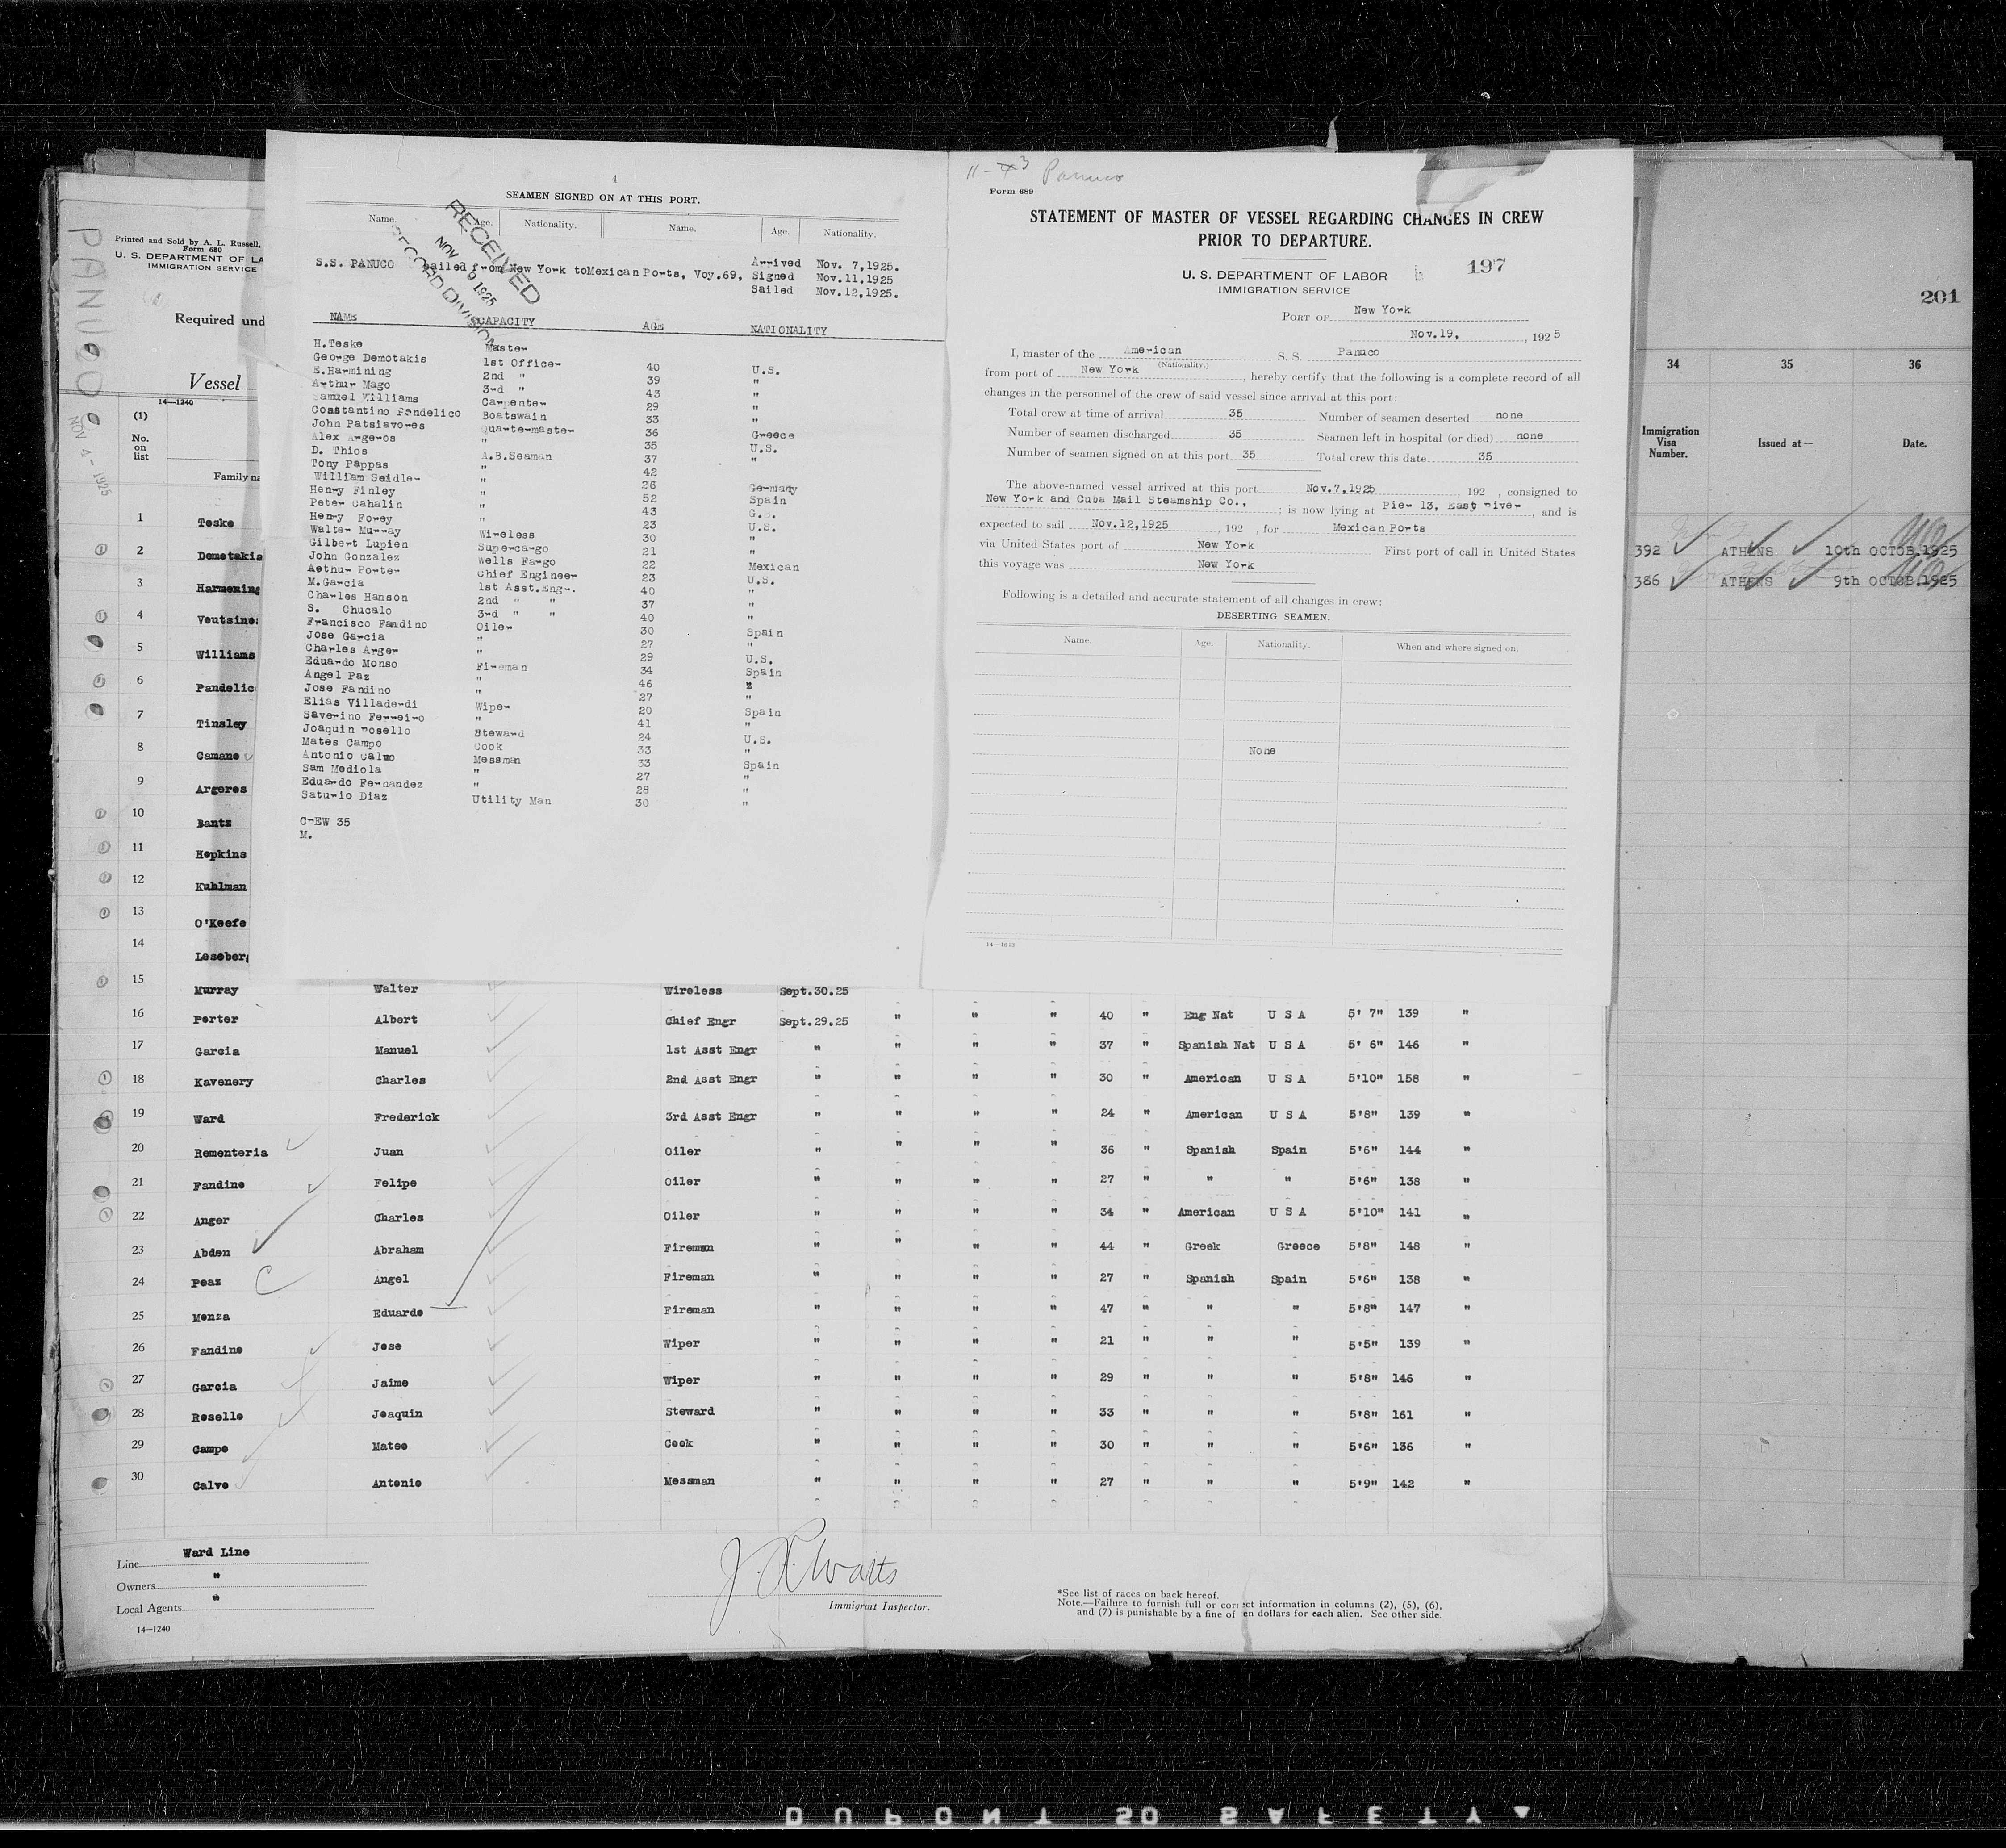 4
SEAMEN SIGNED ON AT THIS PORT.
Name. Age. Nationality. Name. Age. Nationality.
RECEIVED
NOV 1925
RECORD DIVISION
S.S. PANUCO Sailed from New York toMexican Ports, Voy.69, Arrived Nov. 7,1925.
Signed Nov.11,1925
Sailed Nov.12,1925.
NAME CAPACITY AGE NATIONALITY
H.Teske Master
George Demotakis 1st Officer 40 U.S.
E.Harmining 2nd " 39 "
Arthur Mago 3rd " 43 "
Samuel Williams Carpenter 29 "
Constantino Pandelico Boatswain 33 "
John Patsiavores Quartermaster 36 Greece
Alex Argeros " 35 U.S.
D. Thios A.B.Seaman 37 "
Tony Pappas " 42
William Seidler " 26 Germany
Henry Finley " 52 Spain
Peter Cahalin " 43 G.B.
Henry Forey " 23 U.S.
Walter Murray Wireless 30 "
Gilbert Lupien Supercargo 21 "
John Gonzalez Wells Fargo 22 Mexican
Arthur Porter Chief Engineer 23 U.S.
M.Garcia 1st Asst.Engr. 40 "
Charles Hanson 2nd " " 37 "
S. Chucalo 3rd " " 40 "
Francisco Fandino Oiler 30 Spain
Jose Garcia " 27 "
Charles Arger " 29 U.S.
Eduardo Monso Fireman 34 Spain
Angel Paz " 46
Jose Fandino " 27 "
Elias Villaderdi Wiper 20 Spain
Saverino Ferreiro " 41 "
Joaquin Rosello Steward 24 U.S.
Mates Campo Cook 33 "
Antonio Calmo Messman 33 Spain
Sam Mediola " 27 "
Eduardo Fernandez " 28 "
Saturio Diaz Utility Man 30 "
CREW 35
M.
11- 3 Panuco
Form 689
STATEMENT OF MASTER OF VESSEL REGARDING CHANGES IN CREW
PRIOR TO DEPARTURE.
U. S. DEPARTMENT OF LABOR
IMMIGRATION SERVICE
197
PORT OF New York
Nov.19, , 1925
I, master of the American S. S. Panuco
(Nationality.)
from port of New York , hereby certify that the following is a complete record of all
changes in the personnel of the crew of said vessel since arrival at this port:
Total crew at time of arrival 35 Number of seamen deserted none
Number of seamen discharged 35 Seamen left in hospital (or died) none
Number of seamen signed on at this port 35 Total crew this date 35
The above-named vessel arrived at this port Nov.7,1925 , 192 , consigned to
New York and Cuba Mail Steamship Co., ; is now lying at Pier 13, East River , and is
expected to sail Nov.12,1925 , 192 , for Mexican Ports
via United States port of New York First port of call in United States
this voyage was New York
Following is a detailed and accurate statement of all changes in crew:
DESERTING SEAMEN.
Name. Age. Nationality. When and where signed on.
None
14—1612
PANUCO
NOV 4 - 1925
Printed and Sold by A. L. Russell,
Form 680
U. S. DEPARTMENT OF LA
IMMIGRATION SERVICE
Required und
Vessel
14—1240
(1)
No. on list
Family na
1 Teske
2 Demotakis
3 Harmening
4 Voutsinas
5 Williams
6 Pandelic
7 Tinsley
8 Camano
9 Argeros
10 Bantz
11 Hopkins
12 Kuhlman
13 O'Keefe
14 Leseberg
15 Murray Walter Wireless Sept.30.25
16 Porter Albert Chief Engr Sept.29.25 " " " 40 " Eng Nat U S A 5' 7" 139 "
17 Garcia Manuel 1st Asst Engr " " " " 37 " Spanish Nat U S A 5' 6" 146 "
18 Kavenery Charles 2nd Asst Engr " " " " 30 " American U S A 5'10" 158 "
19 Ward Frederick 3rd Asst Engr " " " " 24 " American U S A 5'8" 139 "
20 Rementeria Juan Oiler " " " " 36 " Spanish Spain 5'6" 144 "
21 Fandino Felipe Oiler " " " " 27 " " " 5'6" 138 "
22 Anger Charles Oiler " " " " 34 " American U S A 5'10" 141 "
23 Abden Abraham Fireman " " " " 44 " Greek Greece 5'8" 148 "
24 Peaz Angel Fireman " " " " 27 " Spanish Spain 5'6" 138 "
25 Monza Eduardo Fireman " " " " 47 " " " 5'8" 147 "
26 Fandino Jose Wiper " " " " 21 " " " 5'5" 139 "
27 Garcia Jaime Wiper " " " " 29 " " " 5'8" 146 "
28 Roselle Joaquin Steward " " " " 33 " " " 5'8" 161 "
29 Campo Mateo Cook " " " " 30 " " " 5'6" 136 "
30 Calvo Antonio Messman " " " " 27 " " " 5'9" 142 "
Line Ward Line
Owners "
Local Agents "
14—1240
J. R. Watts
Immigrant Inspector.
*See list of races on back hereof.
Note.—Failure to furnish full or correct information in columns (2), (5), (6),
and (7) is punishable by a fine of ten dollars for each alien. See other side.
201
34 35 36
Immigration Visa Number. Issued at— Date.
392 ATHENS 10th OCTOB.1925
386 ATHENS 9th OCTOB.1925
DUPONT SO SAFETY